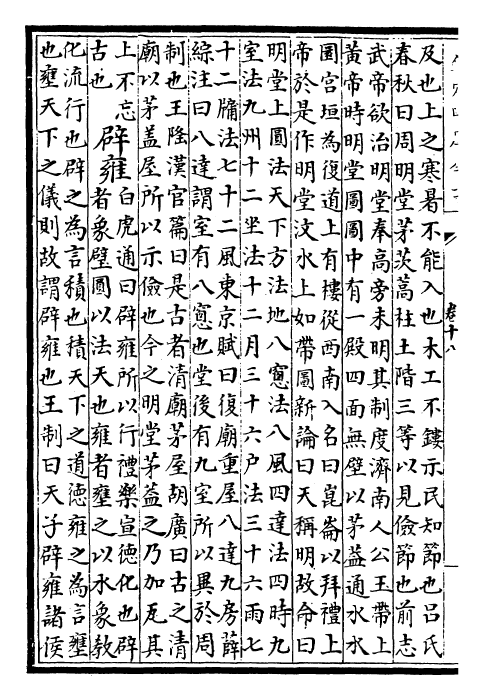 及也上之寒暑不能入也木工不鏤示民知節也吕氏
春秋曰周明堂茅茨蒿柱土階三等以見儉節也前志
武帝欲治明堂奉髙旁未明其制度濟南人公玉帶上
黄帝時明堂圖圖中有一殿四面無壁以茅葢通水水
圜宫垣為復道上有樓從西南入名曰崑崙以拜禮上
帝於是作明堂汶水上如帶圖新論曰天稱明故命曰
明堂上圓法天下方法地八窻法八風四達法四時九
室法九州十二坐法十二月三十六户法三十六雨七
十二牖法七十二風東京賦曰復廟重屋八達九房薛
綜注曰八達謂室有八窻也堂後有九室所以異於周
制也王隆漢官篇曰是古者清廟茅屋胡廣曰古之清
廟以茅盖屋所以示儉也今之明堂茅葢之乃加瓦其
上不忘辟雍白虎通曰辟雍所以行禮樂宣德化也辟
古也者象璧圓以法天也雍者壅之以水象教
化流行也辟之為言積也積天下之道德雍之為言壅
也壅天下之儀則故謂辟雍也王制曰天子辟雍諸侯
卷十八